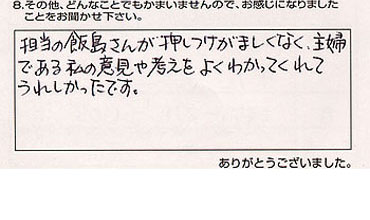 8.その他、どんなことでもかまいませんので、お感じになりました
ことをお聞かせ下さい。
担当の飯島さんが押しつけがましくなく、主婦
である私の意見や考えをよくわかってくれて
うれしかったです。
ありがとうございました。